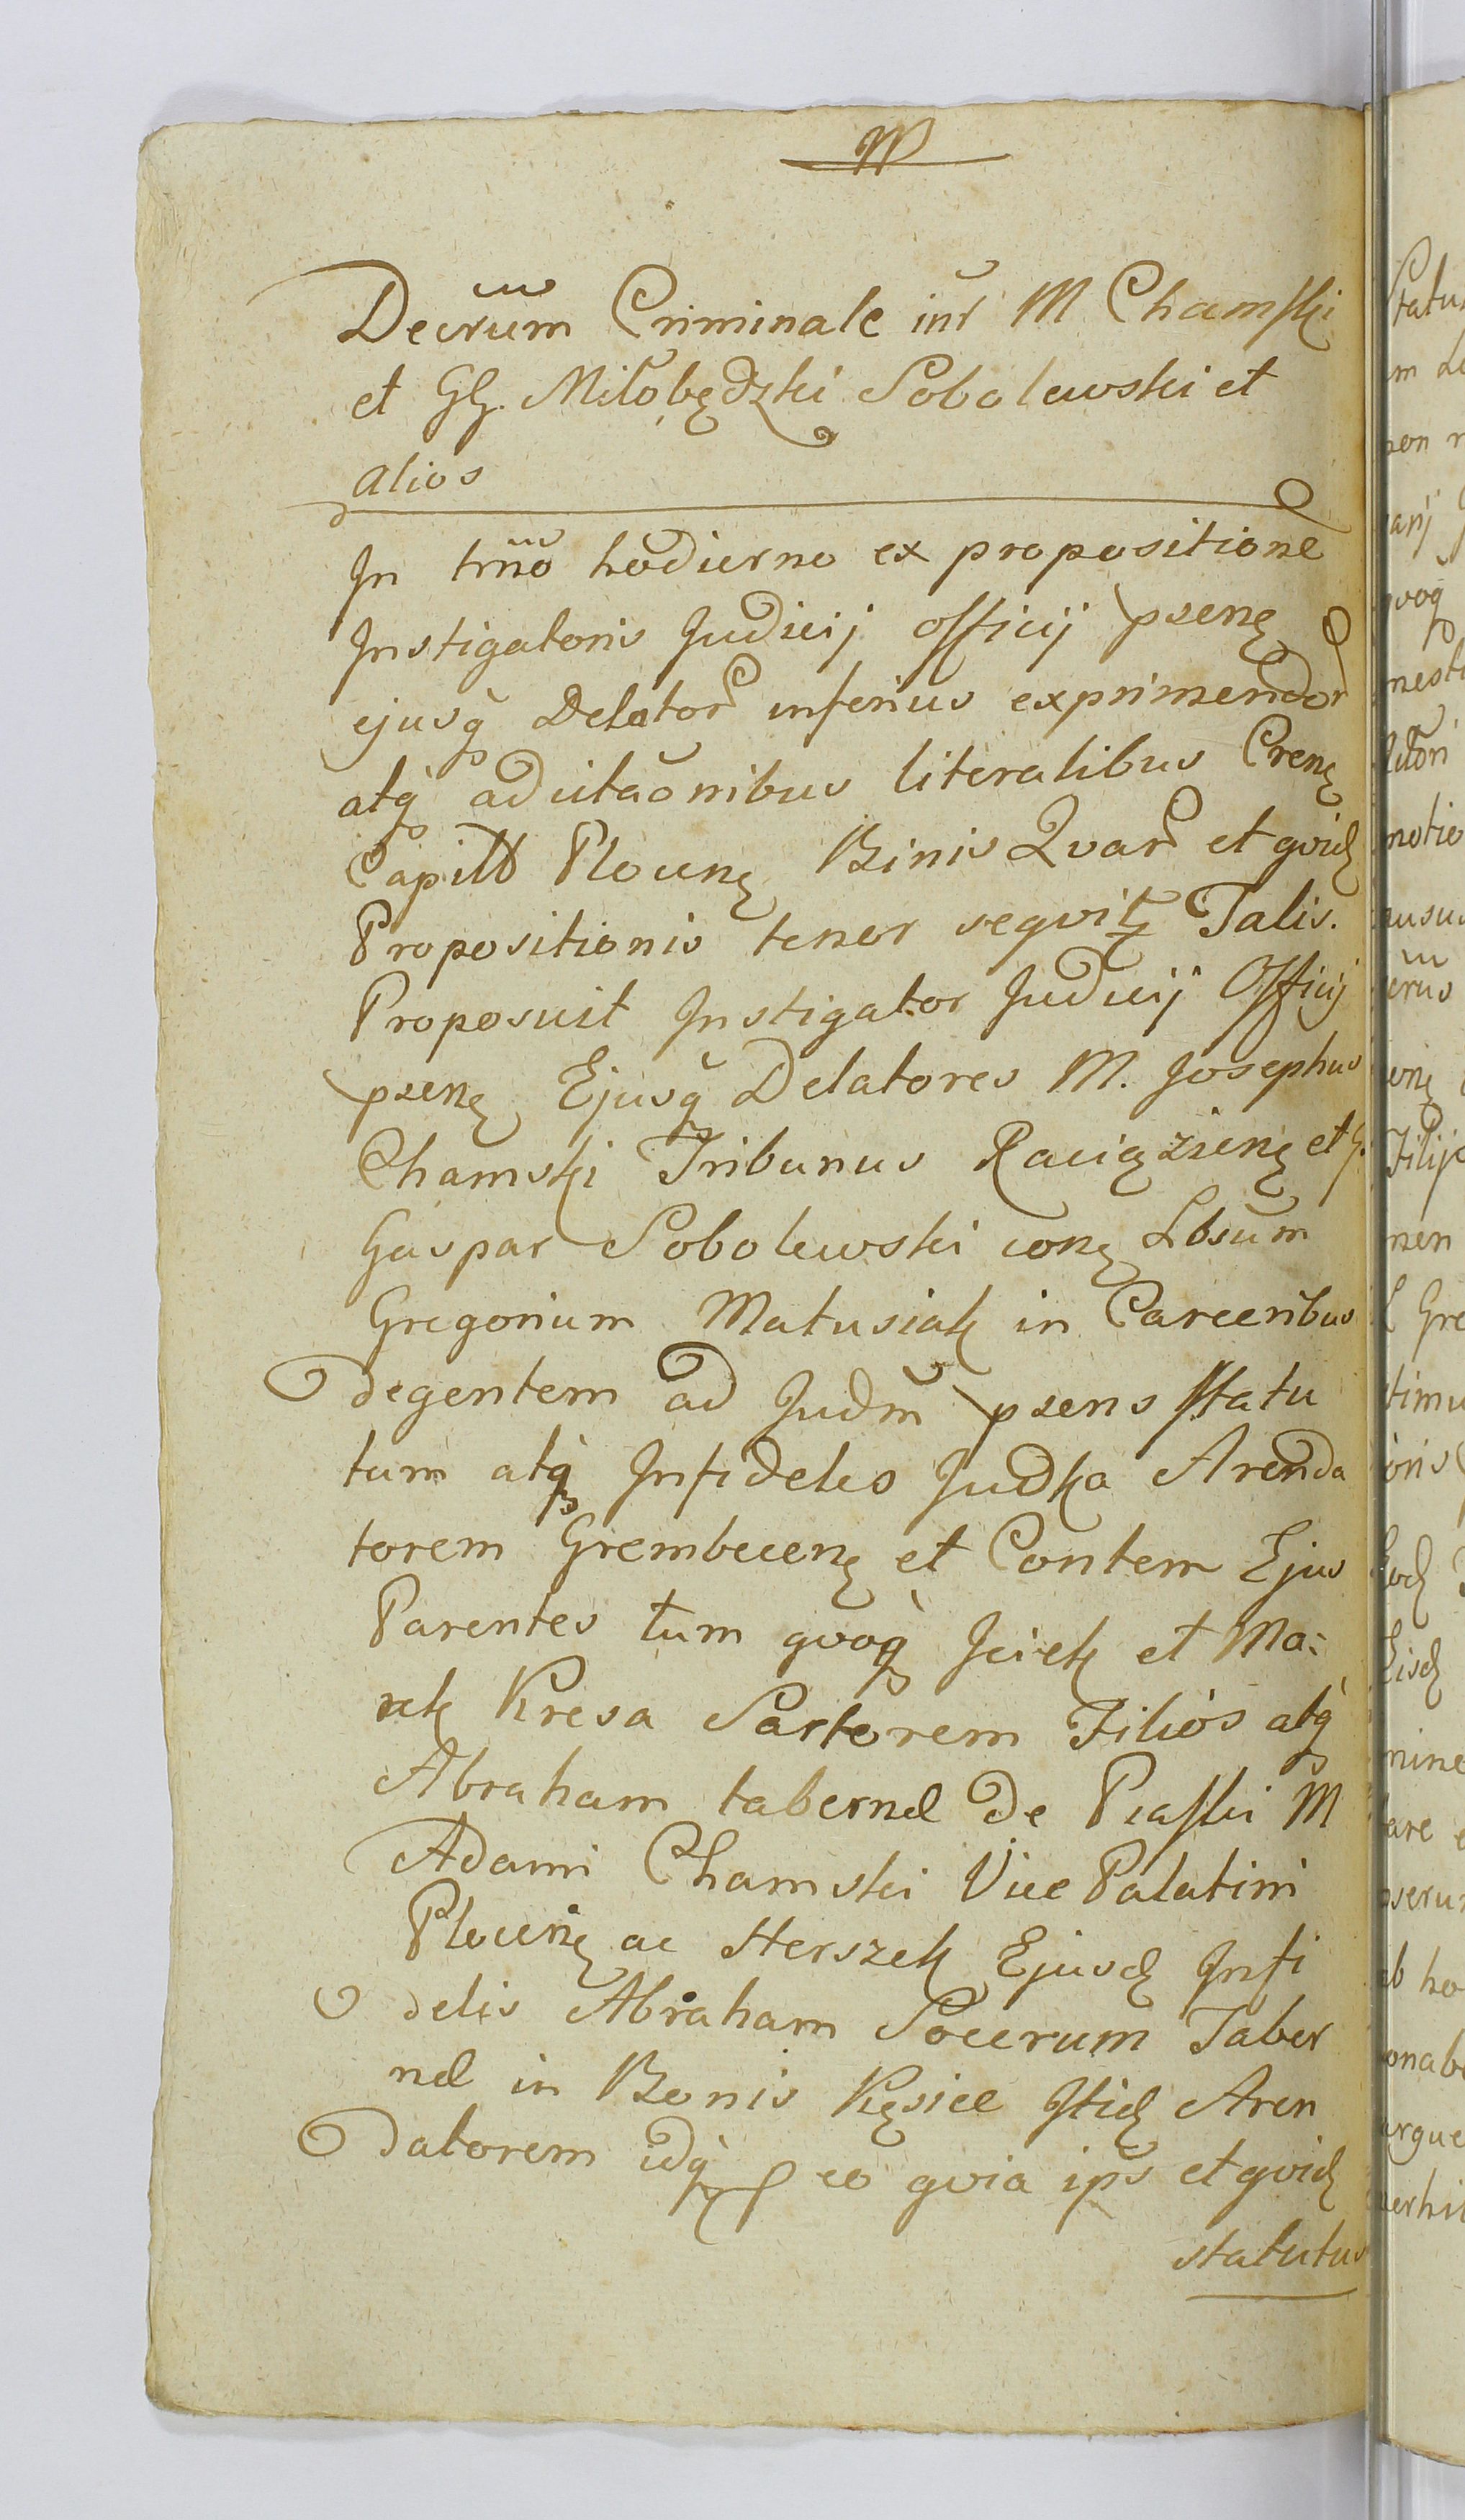 Decrum Criminale intr M Chamski
et GG. Miłobędzki Sobolewski et
alios
In trno hodierno ex propositione
Instigatoris Judicij officij psenę
ejusq Delator inferius exprimendor
atq ad citaõnibus literalibus Crenę
Capitl Plocenę Binis Quar et quid
Propositionis tenor sequit Talis.
Proposuit Instigator Judicij Officij
psenę Ejusq Delatores M. Josephus
Chamski Tribunus Raciązienę et G.
Gaspar Sobolewski conę Lbsum
Gregorium Matusiak in Carceribus
degentem ad Judm psens statu
tum atq Infideles Judka Arenda
torem Grembecenę et Contem Ejus
Parentes tum quoq Jciek et Ma:
rek Kresa Sartorem Filios atq
Abraham tabernel de Piaski M
Adami Chamski Vice Palatini
Plocenę ac Herszek Ejusd Infi
delis Abraham Socerum Taber
nel in Bonis Kęsice Itid Aren
datorem idq eo quia ips et quid
statutus
Statu
non
mesti
motio
Filij
Gre
timu
mine
seru
ab ho